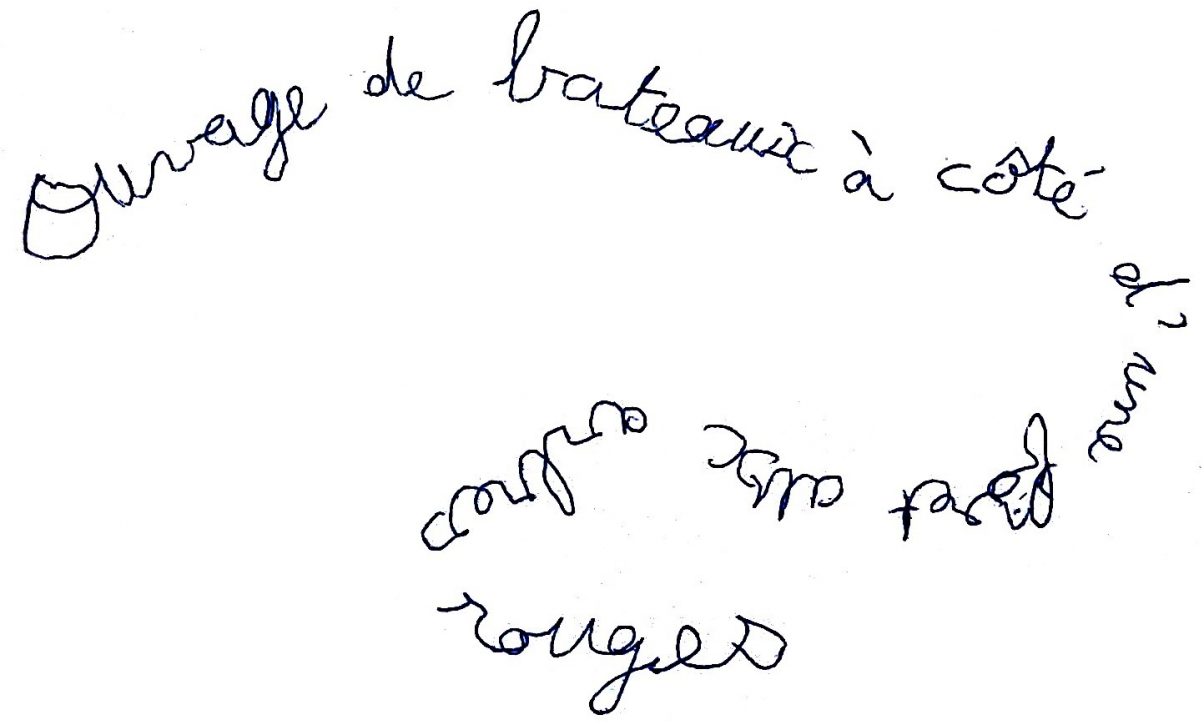 Ouvage de bateaux à côté d'une fôret avec arbres
rouges